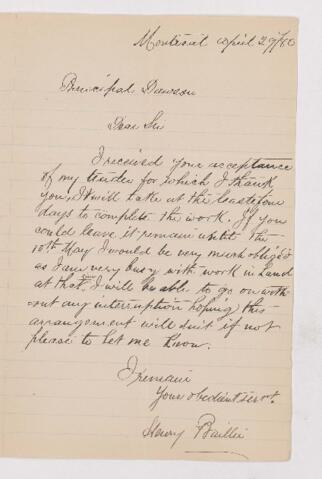 Montreal April 29/80
Principal Dawson
Dear Sir
I received your acceptance
of my tender for which I thank
you, It will take at the least four
days to complete the work. If you
could leave it remain until the
10th May I would be very much oblig'd
as I am very busy with work in hand
at that I will be able to go on with
out any interruption hoping this
arrangement will suit if not
please to let me know.
I remain
Your obedient servt.
Henry Baillie